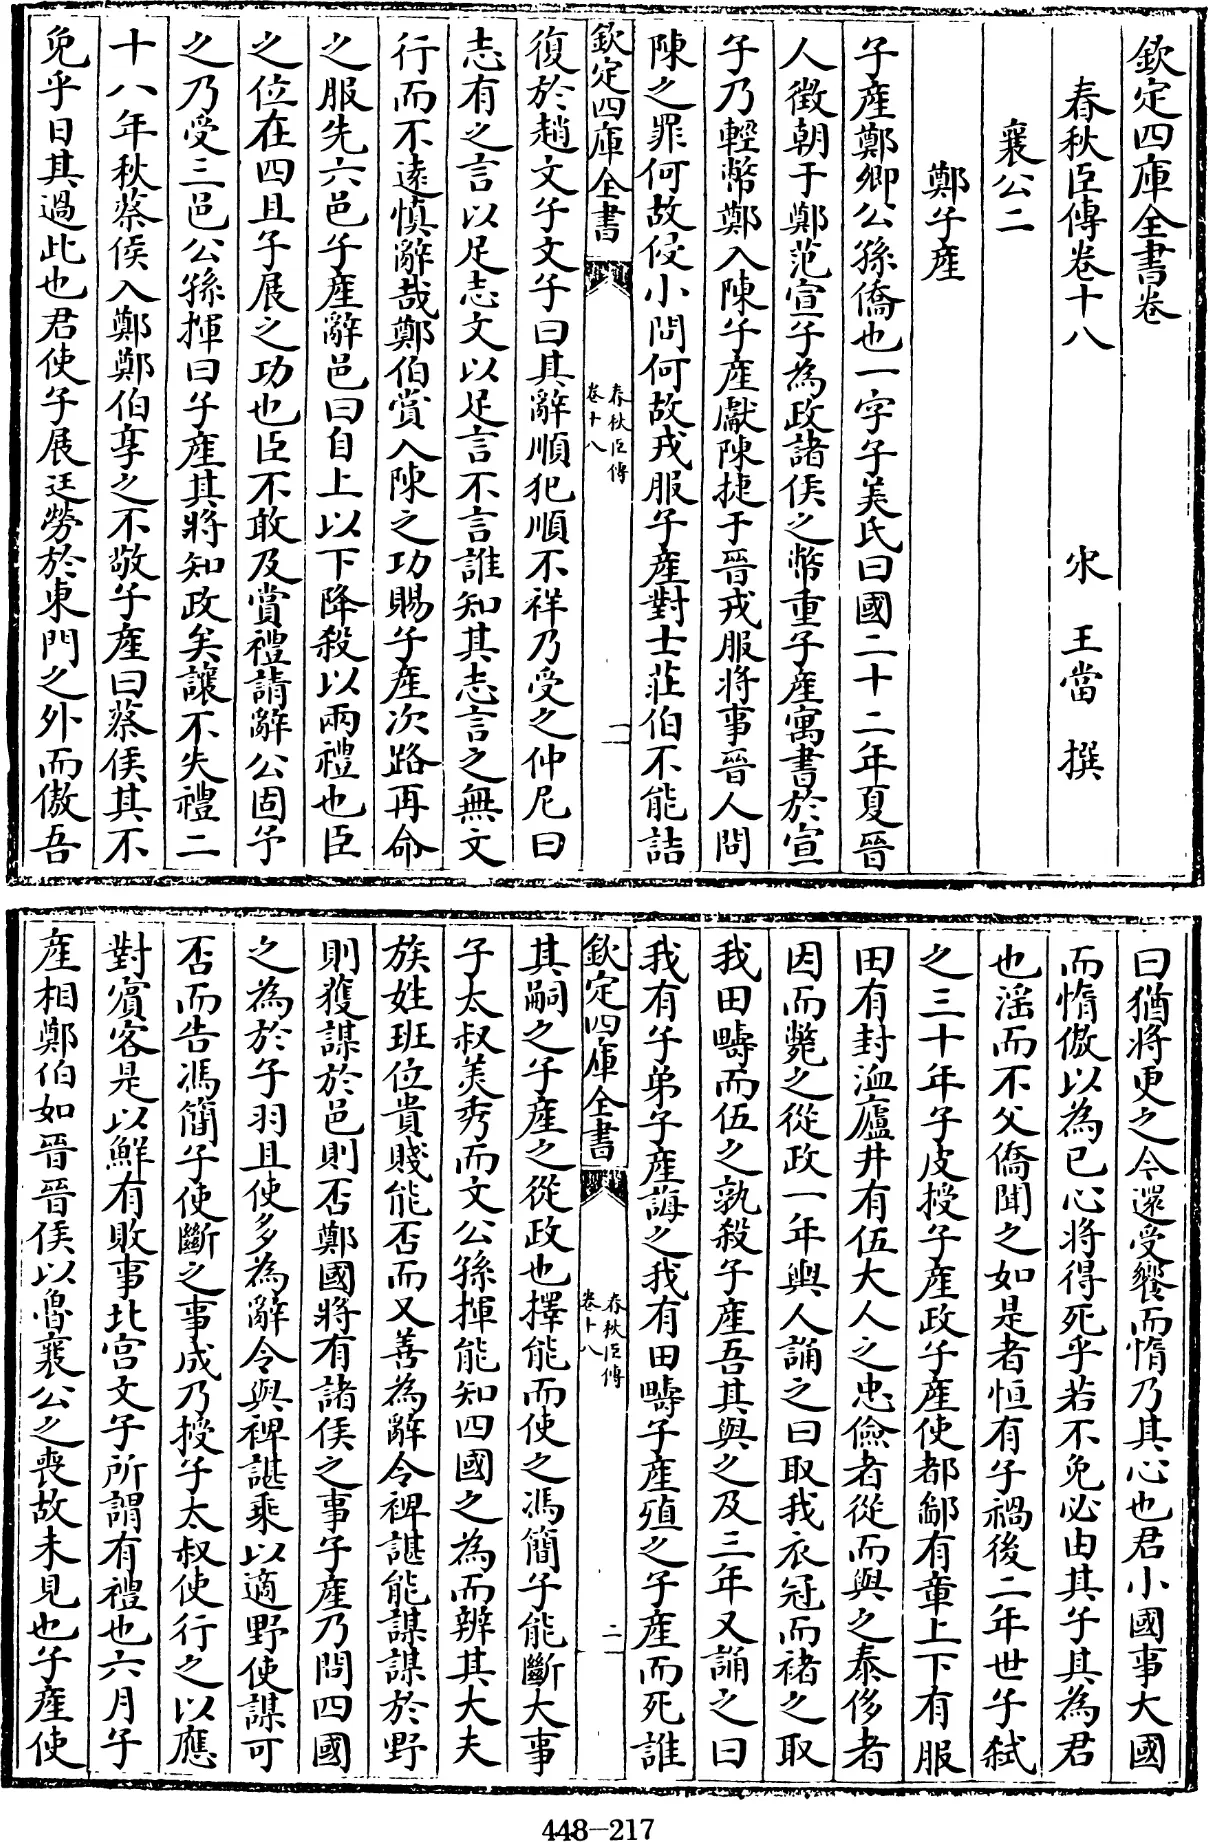 欽定四庫全書卷
春秋臣傳卷十八
宋 王當 撰
襄公二
鄭子産
子産鄭卿公孫僑也一字子美氏曰國二十二年夏晉
人徵朝于鄭范宣子為政諸侯之幣重子産寓書於宣
子乃輕幣鄭入陳子産獻陳捷于晉戎服將事晉人問
陳之罪何故侵小問何故戎服子産對士莊伯不能詰
欽定四庫全書
春秋臣傳
卷十八
一
復於趙文子文子曰其辭順犯順不祥乃受之仲尼曰
志有之言以足志文以足言不言誰知其志言之無文
行而不遠慎辭哉鄭伯賞入陳之功賜子産次路再命
之服先六邑子産辭邑曰自上以下降殺以兩禮也臣
之位在四且子展之功也臣不敢及賞禮請辭公固予
之乃受三邑公孫揮曰子産其將知政矣讓不失禮二
十八年秋蔡侯入鄭鄭伯享之不敬子産曰蔡侯其不
免乎日其過此也君使子展迋勞於東門之外而傲吾
曰猶將更之今還受饗而惰乃其心也君小國事大國
而惰傲以為己心將得死乎若不免必由其子其為君
也淫而不父僑聞之如是者恒有子禍後二年世子弒
之三十年子皮授子産政子産使都鄙有章上下有服
田有封洫廬井有伍大人之忠儉者從而與之泰侈者
因而斃之從政一年輿人誦之曰取我衣冠而褚之取
我田疇而伍之孰殺子産吾其與之及三年又誦之曰
我有子弟子産誨之我有田疇子産殖之子産而死誰
欽定四庫全書
春秋臣傳
卷十八
二
其嗣之子産之從政也擇能而使之馮簡子能斷大事
子太叔美秀而文公孫揮能知四國之為而辨其大夫
族姓班位貴賤能否而又善為辭令裨諶能謀謀於野
則獲謀於邑則否鄭國將有諸侯之事子産乃問四國
之為於子羽且使多為辭令與裨諶乘以適野使謀可
否而告馮簡子使斷之事成乃授子太叔使行之以應
對賓客是以鮮有敗事北宫文子所謂有禮也六月子
産相鄭伯如晉晉侯以魯襄公之喪故未見也子産使
448-217